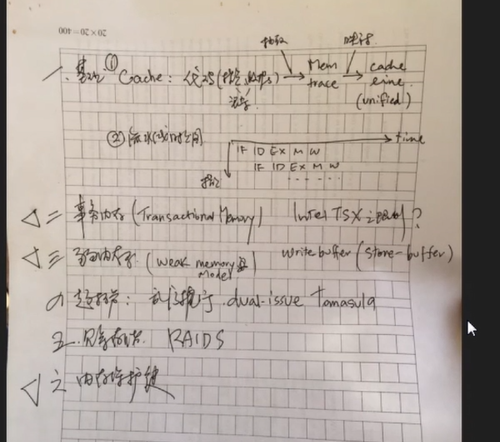 20×20=400
一. 基础 ① Cache: 代码 (指令, 数据) → Mem trace → cache line (unified)
② 流水线时空图 time
IF ID EX M W
IF ID EX M W
指令
二 事务内存 (Transactional Memory) Intel TSX ?
三 弱内存 (Weak memory Model) Write buffer (store-buffer)
四 超标量: 乱序执行. dual-issue Tomasulo
五. RAID5
六 内存保护键